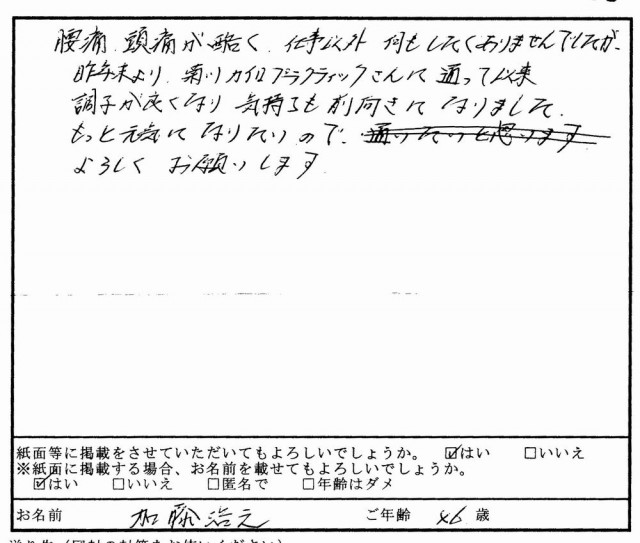 腰痛、頭痛が酷く、仕事以外何もしてくありませんでしたが、
昨年末より、菊川カイロプラクティックさんに通って以来
調子が良くなり気持ちも前向きになりました。
もっと元気になりたいので、通いたいと思います
よろしくお願いします。
紙面等に掲載をさせていただいてもよろしいでしょうか。 ☑はい □いいえ
※紙面に掲載する場合、お名前を載せてもよろしいでしょうか。
☑はい □いいえ □匿名で □年齢はダメ
お名前 加藤浩之 ご年齢 46 歳